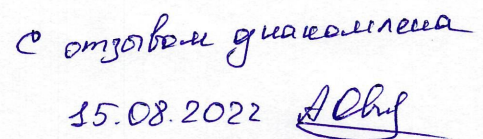 С отзывом ознакомлена
15.08.2022